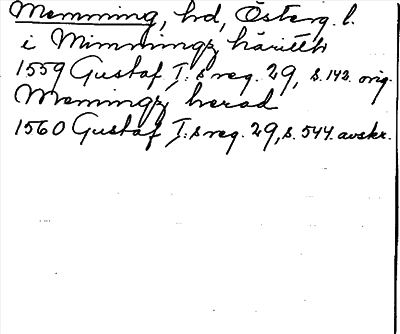 Memming, hd, Österg. l.
i Mimmingz häritth
1559 Gustaf I:s reg. 29, s. 142. orig.
Memingz herad
1560 Gustaf I:s reg. 29, s. 544. avskr.